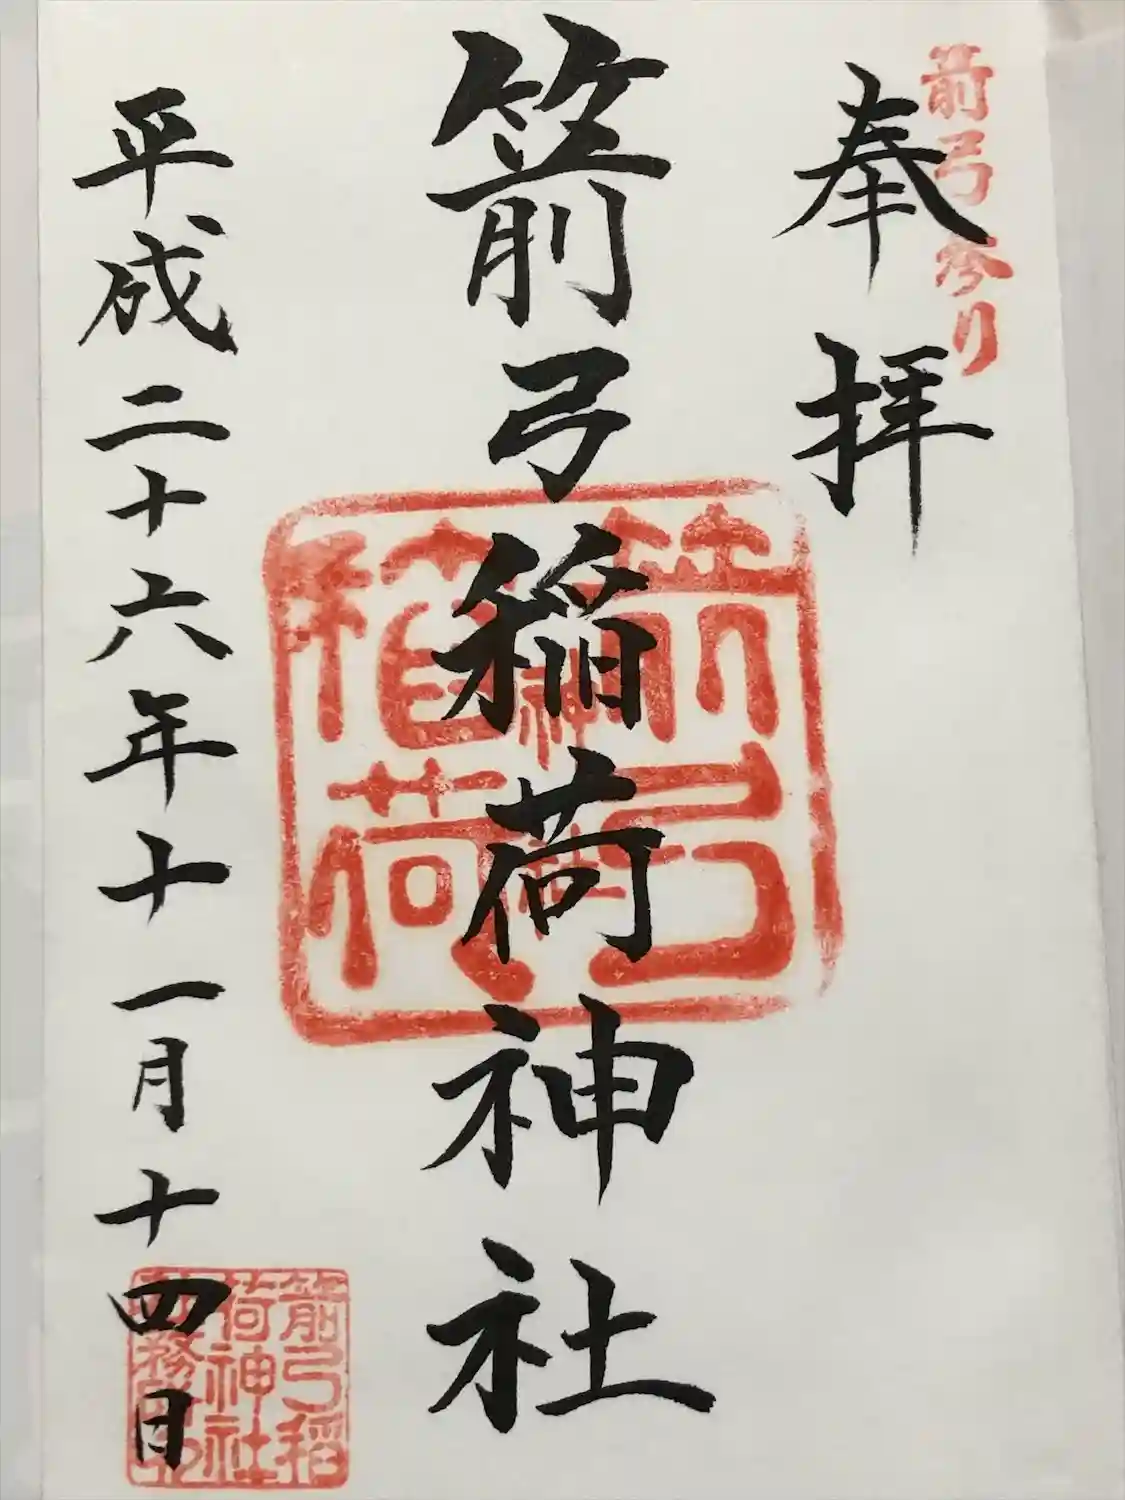 箭弓参り
奉拝
箭弓稲荷神社
平成二十六年十一月十四日
箭弓
稲荷
神社
箭弓稲
荷神社